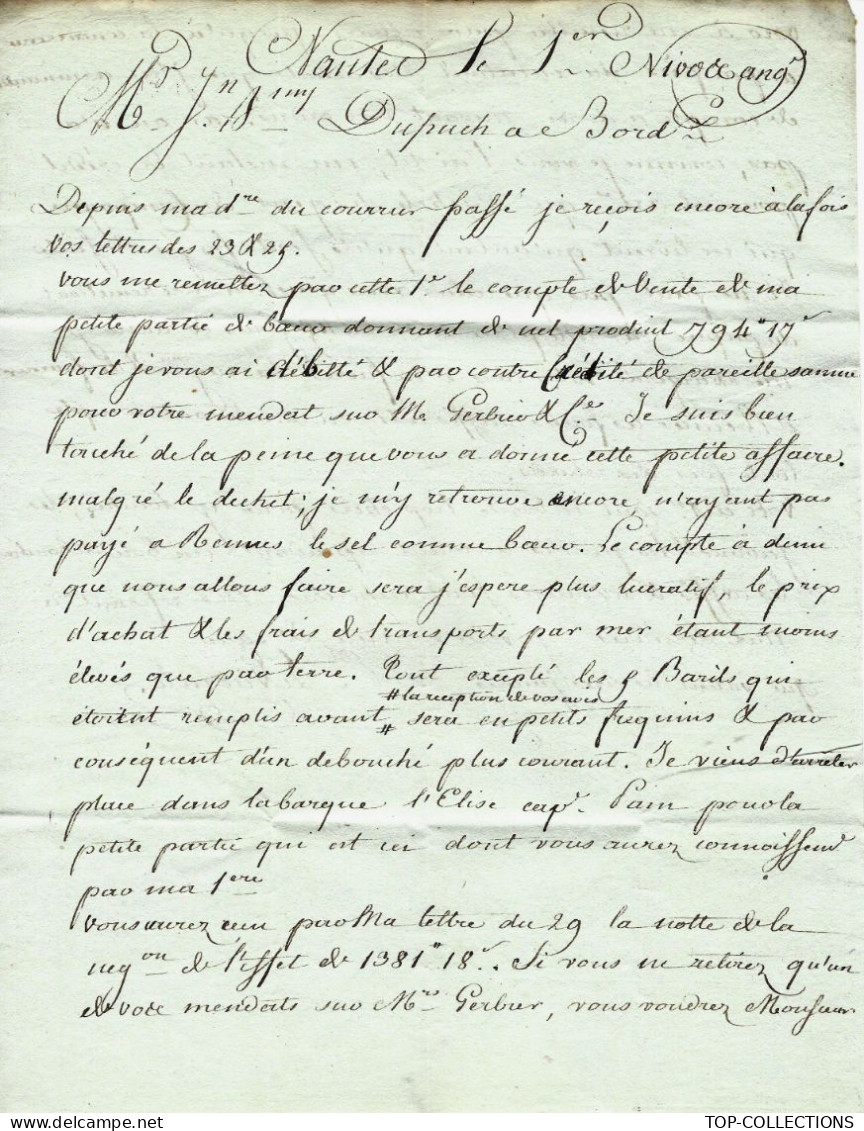 Nantes le 1er Nivose an 9
Mr Jn Dupuch a Bordx
Depuis ma dre du courrier passé je reçois encore à la fois
vos lettres des 23 & 25.
vous me remettez par cette 1e le compte de vente de ma
petite partie de bœur donnant de net produit 794" 17s
dont je vous ai débitté & par contre Crédité de pareille somme
pour votre mendat sur M. Gerbier & Ce Je suis bien
touché de la peine que vous a donné cette petite affaire.
malgré le dechet, je m'y retrouve encore, n'ayant pas
payé a Rennes le sel comme bœur. Le compte à demi
que nous allons faire sera j'espere plus lucratif, le prix
d'achat & les frais de transports par mer étant moins
élevés que par terre. Tout excepté les 5 Barils qui
#la reception de vos avis
étoient remplis avant # sera en petits frequins & par
conséquent d'un debouché plus courant. Je viens d'arreter
place dans la barque l'Elise cape. Pain pour la
petite partie qui est ici dont vous aurez connoissemt
par ma 1ere
vous aurez eu par Ma lettre du 29 la notte de la
negon de l'effet de 1381" 18s. Si vous ne retirez qu'un
de vos mendats sur Mrs Gerbier, vous voudrez Monsieur
TOP-COLLECTIONS